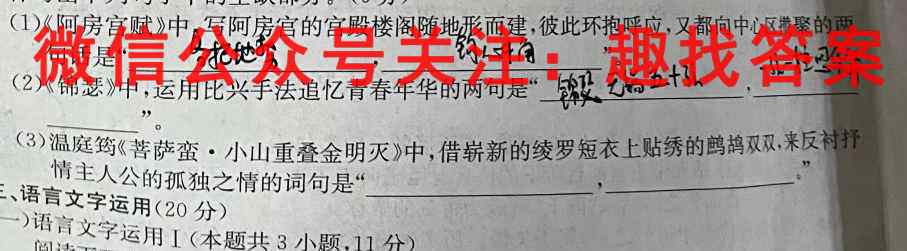 (1)《阿房宫赋》中,写阿房宫的宫殿楼阁随地形而建,彼此环抱呼应,又都向中心区攒聚的两
微信公众号关注：趣找答案
句是“
(2)《锦瑟》中,运用比兴手法追忆青春年华的两句是“ ,
”。
(3)温庭筠《菩萨蛮·小山重叠金明灭》中,借崭新的绫罗短衣上贴绣的鹧鸪双双,来反衬抒
情主人公的孤独之情的词句是“ , 。”
三、语言文字运用(20 分)
一)语言文字运用Ⅰ(本题共 3 小题,11 分)